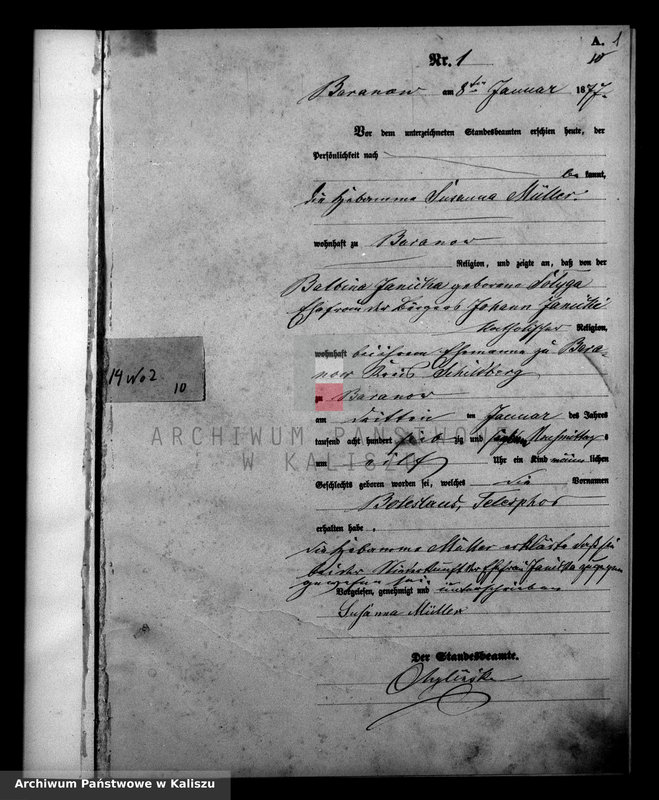 A. 1
Nr. 1
10
Baranow am 8ten Januar 1877.
Vor dem unterzeichneten Standesbeamten erschien heute, der
Persönlichkeit nach
be kannt,
die Hebamme Susanna Müller.
wohnhaft zu Baranow
Religion, und zeigte an, daß von der
Balbina Janicka geborene
Ehefrau des Bürgers Johann Janicki
katholischer Religion,
wohnhaft bei ihrem Ehemanne zu Bara-
now Kreis Schildberg
zu Baranow
am dritten ten Januar des Jahres
tausend acht hundert sieb zig und sieben Vormittag s
um Uhr ein Kind männ lichen
Geschlechts geboren worden sei, welches die Vornamen
Boleslaus, Telesphor
erhalten habe.
die Hebamme Müller erklärte daß sie
bei der Niederkunft der Ehefrau Janicka zugegen
gewesen sei
Vorgelesen, genehmigt und unterschrieben
Susanna Müller
Der Standesbeamte.
14 W 02
10
ARCHIWUM PAŃSTWOWE
W KALISZU
Archiwum Państwowe w Kaliszu